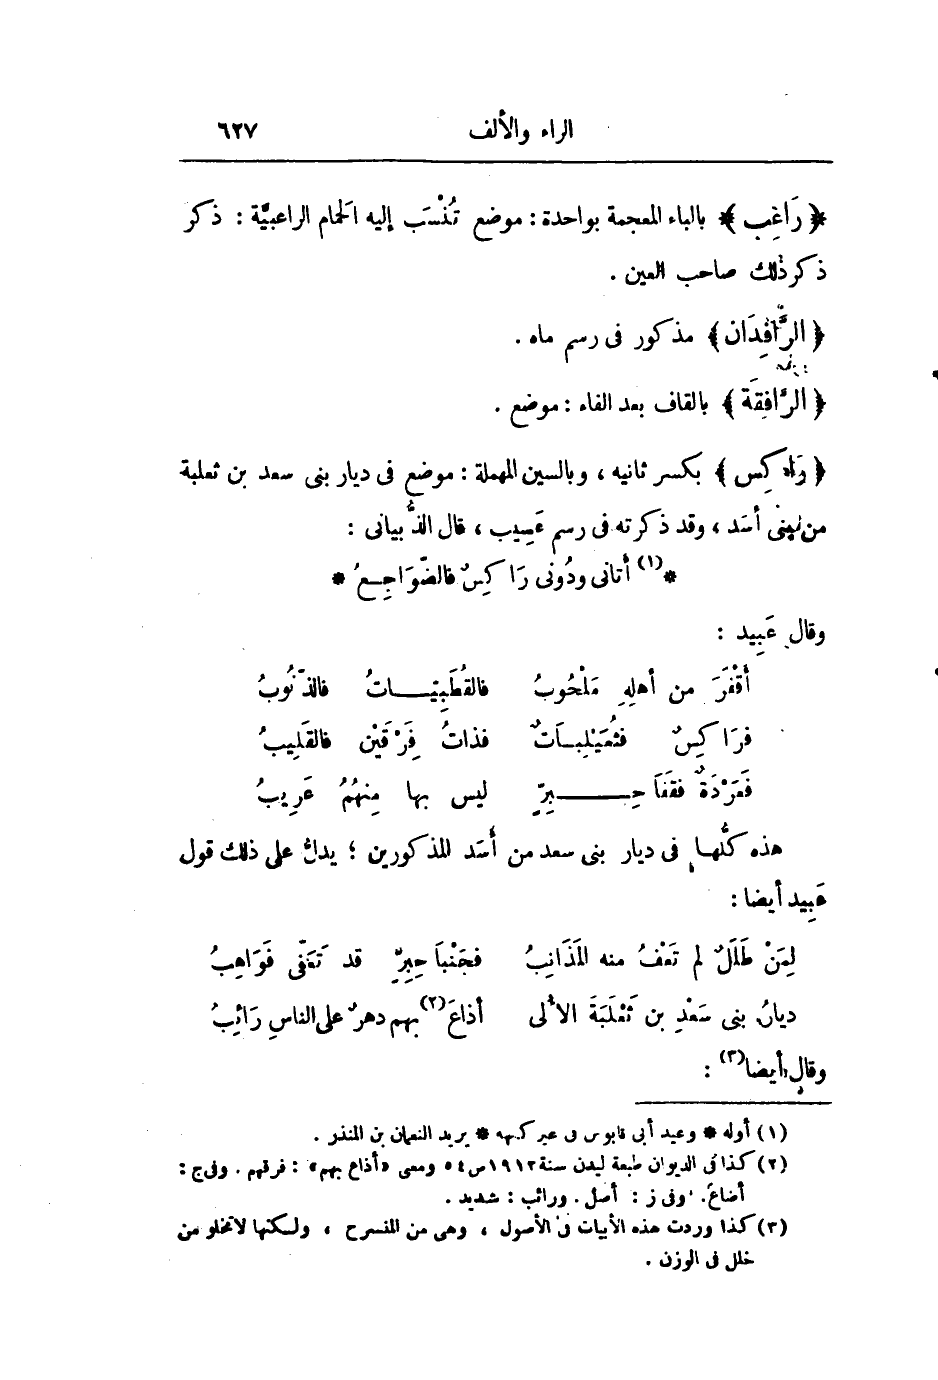 الراء والألف ٦٢٧
﴿ رَاغِب ﴾ بالباء المعجمة بواحدة : موضع تُنْسَب إليه الحَمام الراعبيَّة : ذكر
ذكر ذلك صاحب العين .
﴿ الرَّافِدَان ﴾ مذكور فى رسم ماه .
﴿ الرَّافِقَة ﴾ بالقاف بعد الفاء : موضع .
﴿ رَاكِس ﴾ بكسر ثانيه ، وبالسين المهملة : موضع فى ديار بنى سعد بن ثعلبة
من بنى أسَد ، وقد ذكرته فى رسم عَسِيب ، قال الذُّبيانى :
* (١) أتانى ودُونى رَاكِسٌ فالضَّوَاجِعُ *
وقال عَبِيد :
أقْفَرَ من أهلِهِ مَلْحُوبُ فالقُطَبِيّــاتُ فالذَّنُوبُ
فرَاكِسٌ فثُعَيْلِبـاتٌ فذاتُ فِرْقَيْنِ فالقَلِيبُ
فَعَرْدَةٌ فقَفَا حِــــبِرٍّ ليس بها مِنهُمُ عَرِيبُ
هذه كلُّها فى ديار بنى سعد من أسَد المذكورين ؛ يدلّ على ذلك قول
عَبِيد أيضا :
لِمَنْ طَلَلٌ لم تَعْفُ منه المَذَانِبُ فجَنْبَا حِبِرٍّ قد تَعَفَّى فَوَاهِبُ
ديارُ بنى سَعْدِ بن ثَعْلَبَةَ الأُلى أذاعَ (٢) بهم دهرٌ على الناسِ رَائِبُ
وقال أيضا (٣) :
(١) أوله * وعيد أبى قابوس فى غير كنهه * يريد النعمان بن المنذر .
(٢) كذا فى الديوان طبعة ليدن سنة ١٩١٣ ص ٥٤ ومعنى «أذاع بهم» : فرقهم . وفى ج :
أضاع . وفى ز : أصل . ورائب : شديد .
(٣) كذا وردت هذه الأبيات فى الأصول ، وهى من المنسرح ، ولكنها لا تخلو من
خلل فى الوزن .